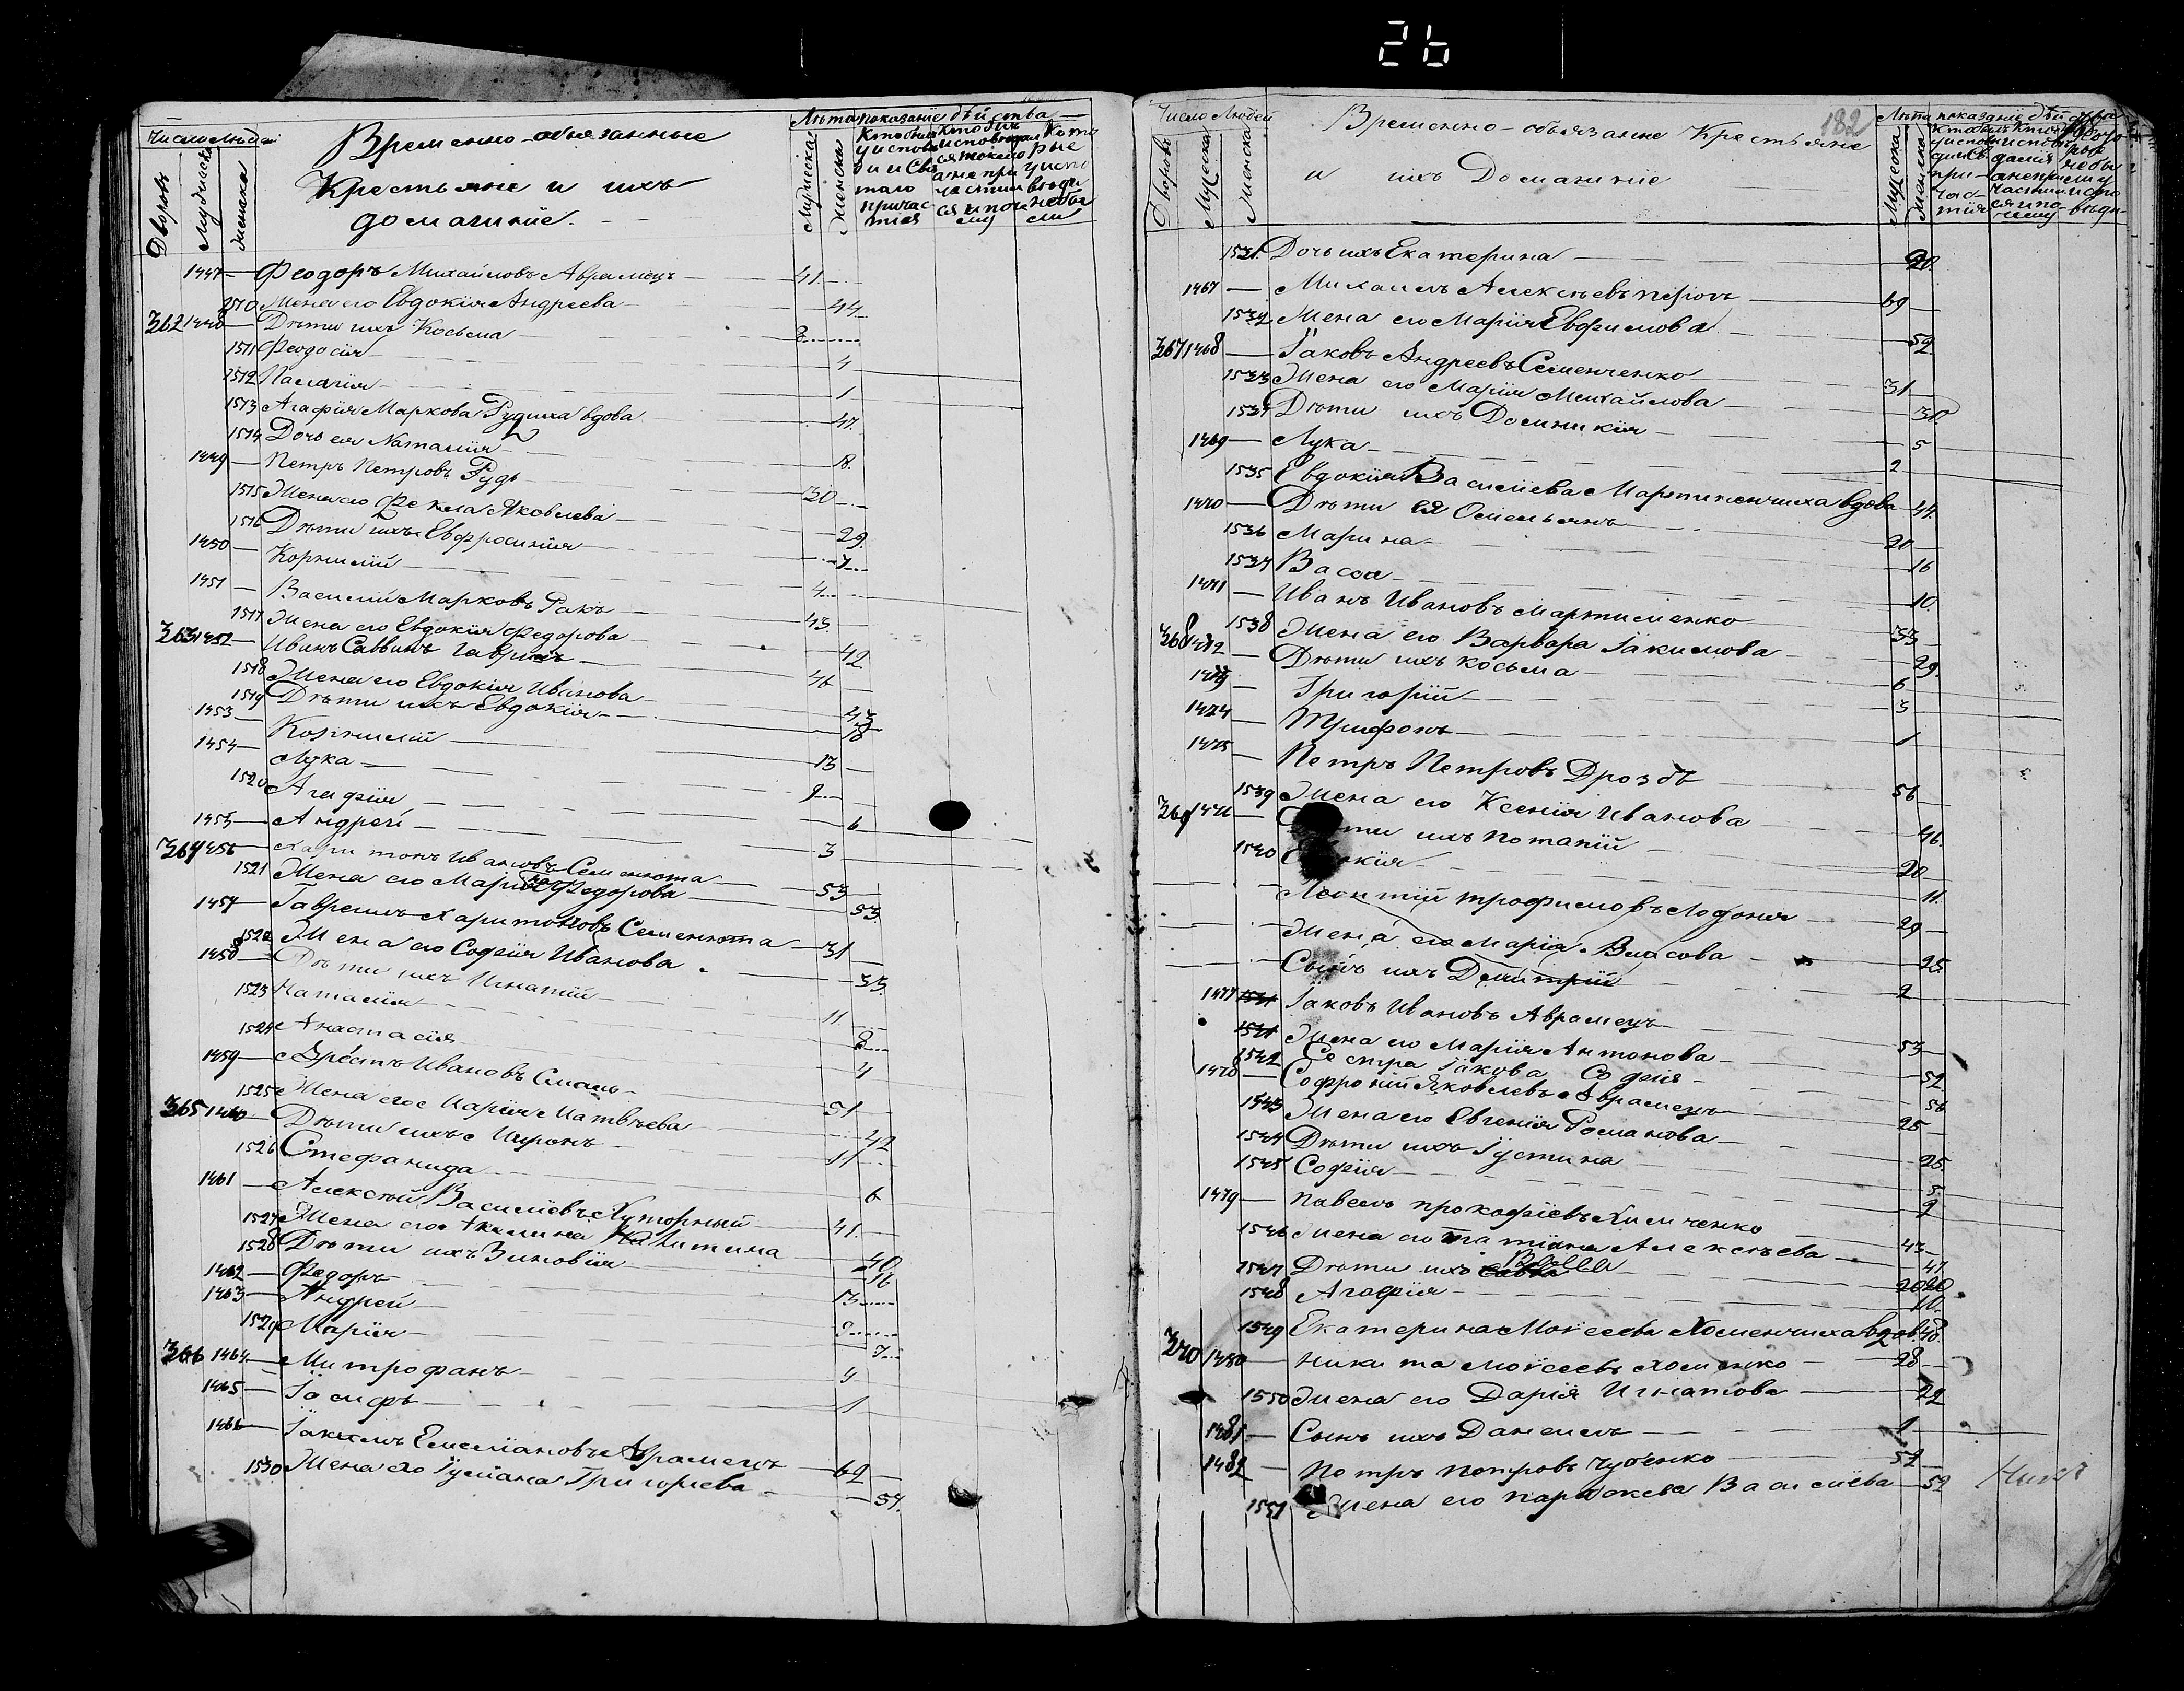 26
Число людей
Временно-обязанные
Крестьяне и ихъ
домашніе.
Лѣта показаніе дѣйства
Дворовъ
Мужеска
Женска
Мужеска
Женска
1447 — Феодоръ Михайловъ Аврамецъ — 41
1510 Жена его Евдокія Андреева — 44
362 1448 — Дѣти ихъ Косьма — 8
1511 Феодосія — 4
1512 Палагія — 1
1513 Агафія Маркова Рудиха вдова 47
1514 Дочь ея Наталія — 18
1449 — Петръ Петровъ Рудь — 30
1515 Жена его Фекла Яковлева — 29
1516 Дѣти ихъ Евфросинія — 7
1450 — Корнилій — 4
1451 — Василій Марковъ Ракъ — 43
1517 Жена его Евдокія Федорова — 42
363 1452 — Иванъ Саввинъ — 46
1518 Жена его Евдокія Иванова — 43
1519 Дѣти ихъ Евдокія — 18
1453 — Корнилій — 13
1454 — Лука — 9
1520 Агафія — 6
1455 — Андрей — 3
364 1456 — Харитонъ Ивановъ Семенкота — 53
1521 Жена его Марія Федорова — 53
1457 — Гавріилъ Харитоновъ Семенкота — 31
1522 Жена его Софія Иванова — 33
1458 — Дѣти ихъ Игнатій — 11
1523 Наталія — 8
1524 Анастасія — 4
1459 — Ивановъ — 51
1525 Жена его Марія Матвѣева — 42
365 1460 — Дѣти ихъ Миронъ — 11
1526 Стефанида — 6
1461 — Алексѣй Василіевъ Хуторный — 41
1527 Жена его Акилина Никитина — 40
1528 Дѣти ихъ Зиновія — 16
1462 — Федоръ — 13
1463 — Андрей — 9
1529 Марія — 7
366 1464 — Митрофанъ — 4
1465 — Іосифъ — 1
1466 — Іакимъ Емеліановъ Аврамецъ — 62
1530 Жена его Іуліана Григоріева — 57
Число Людей
Временно-обязанне Крестьяне
182
и ихъ Домашніе
Лѣта показаніе дѣйства
Дворовъ
Мужеска
Женска
Мужеска
Женска
1531 Дочь ихъ Екатерина — 20
1467 — Михаилъ Алексѣевъ — 69
1532 Жена его Марія Евфимова — 52
367 1468 — Іаковъ Андреевъ Семенченко — 31
1533 Жена его Марія Михайлова — 30
1534 Дѣти ихъ Доминикія — 5
1469 — Лука — 2
1535 Евдокія Василіева Мартименчиха вдова 44
1470 — Дѣти ея Омельянъ — 20
1536 Марина — 16
1537 Васса — 10
1471 — Иванъ Ивановъ Мартименко — 33
1538 Жена его Варвара Іакимова — 29
368 1472 — Дѣти ихъ Косьма — 6
1473 — Григорій — 3
1474 — Трифонъ — 1
1475 — Петръ Петровъ Дроздъ — 56
1539 Жена его Ксенія Иванова — 46
369 1476 — Дѣти ихъ Потапій — 20
1540 — 11
Леонтій Трофимовъ — 29
Жена его Марія Власова — 25
Сынъ ихъ Димитрій — 2
1477 Іаковъ Ивановъ Аврамецъ — 53
1541 Жена его Марія Антонова — 52
1542 Сестра Іакова Софія — 56
1478 — Софроній Яковлевъ Аврамецъ — 25
1543 Жена его Евгенія Романова — 25
1544 Дѣти ихъ Іустина — 5
1545 Софія — 2
1479 — Павелъ Прокофіевъ Хименко — 43
1546 Жена его Татіана Алексѣева — 41
1547 Дѣти ихъ — 20
1548 Агафія — 11
1549 Екатерина Моѵсеева Хоменчиха вдов. 48
370 1480 — Никита Моѵсеевъ Хоменко — 28
1550 Жена его Дарія Игнатова — 22
1481 — Сынъ ихъ Даніилъ — 1
1482 — Петръ Петровъ — 52
1551 Жена его Параскева Василіева — 52